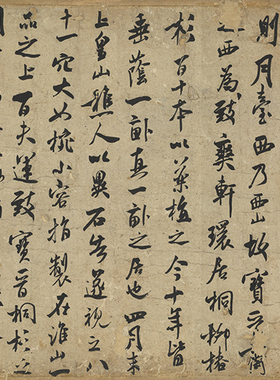 則月臺西乃西山故寶晉齋
之西為致爽軒環居桐柳椿
杉百十本以藥植之今十年皆
垂蔭一畝真一畝之居也四月末
上皇山樵人以異石告遂視之八
十一穴大如椀小容指製在淮山一
品之上百夫運致寶晉桐杉之